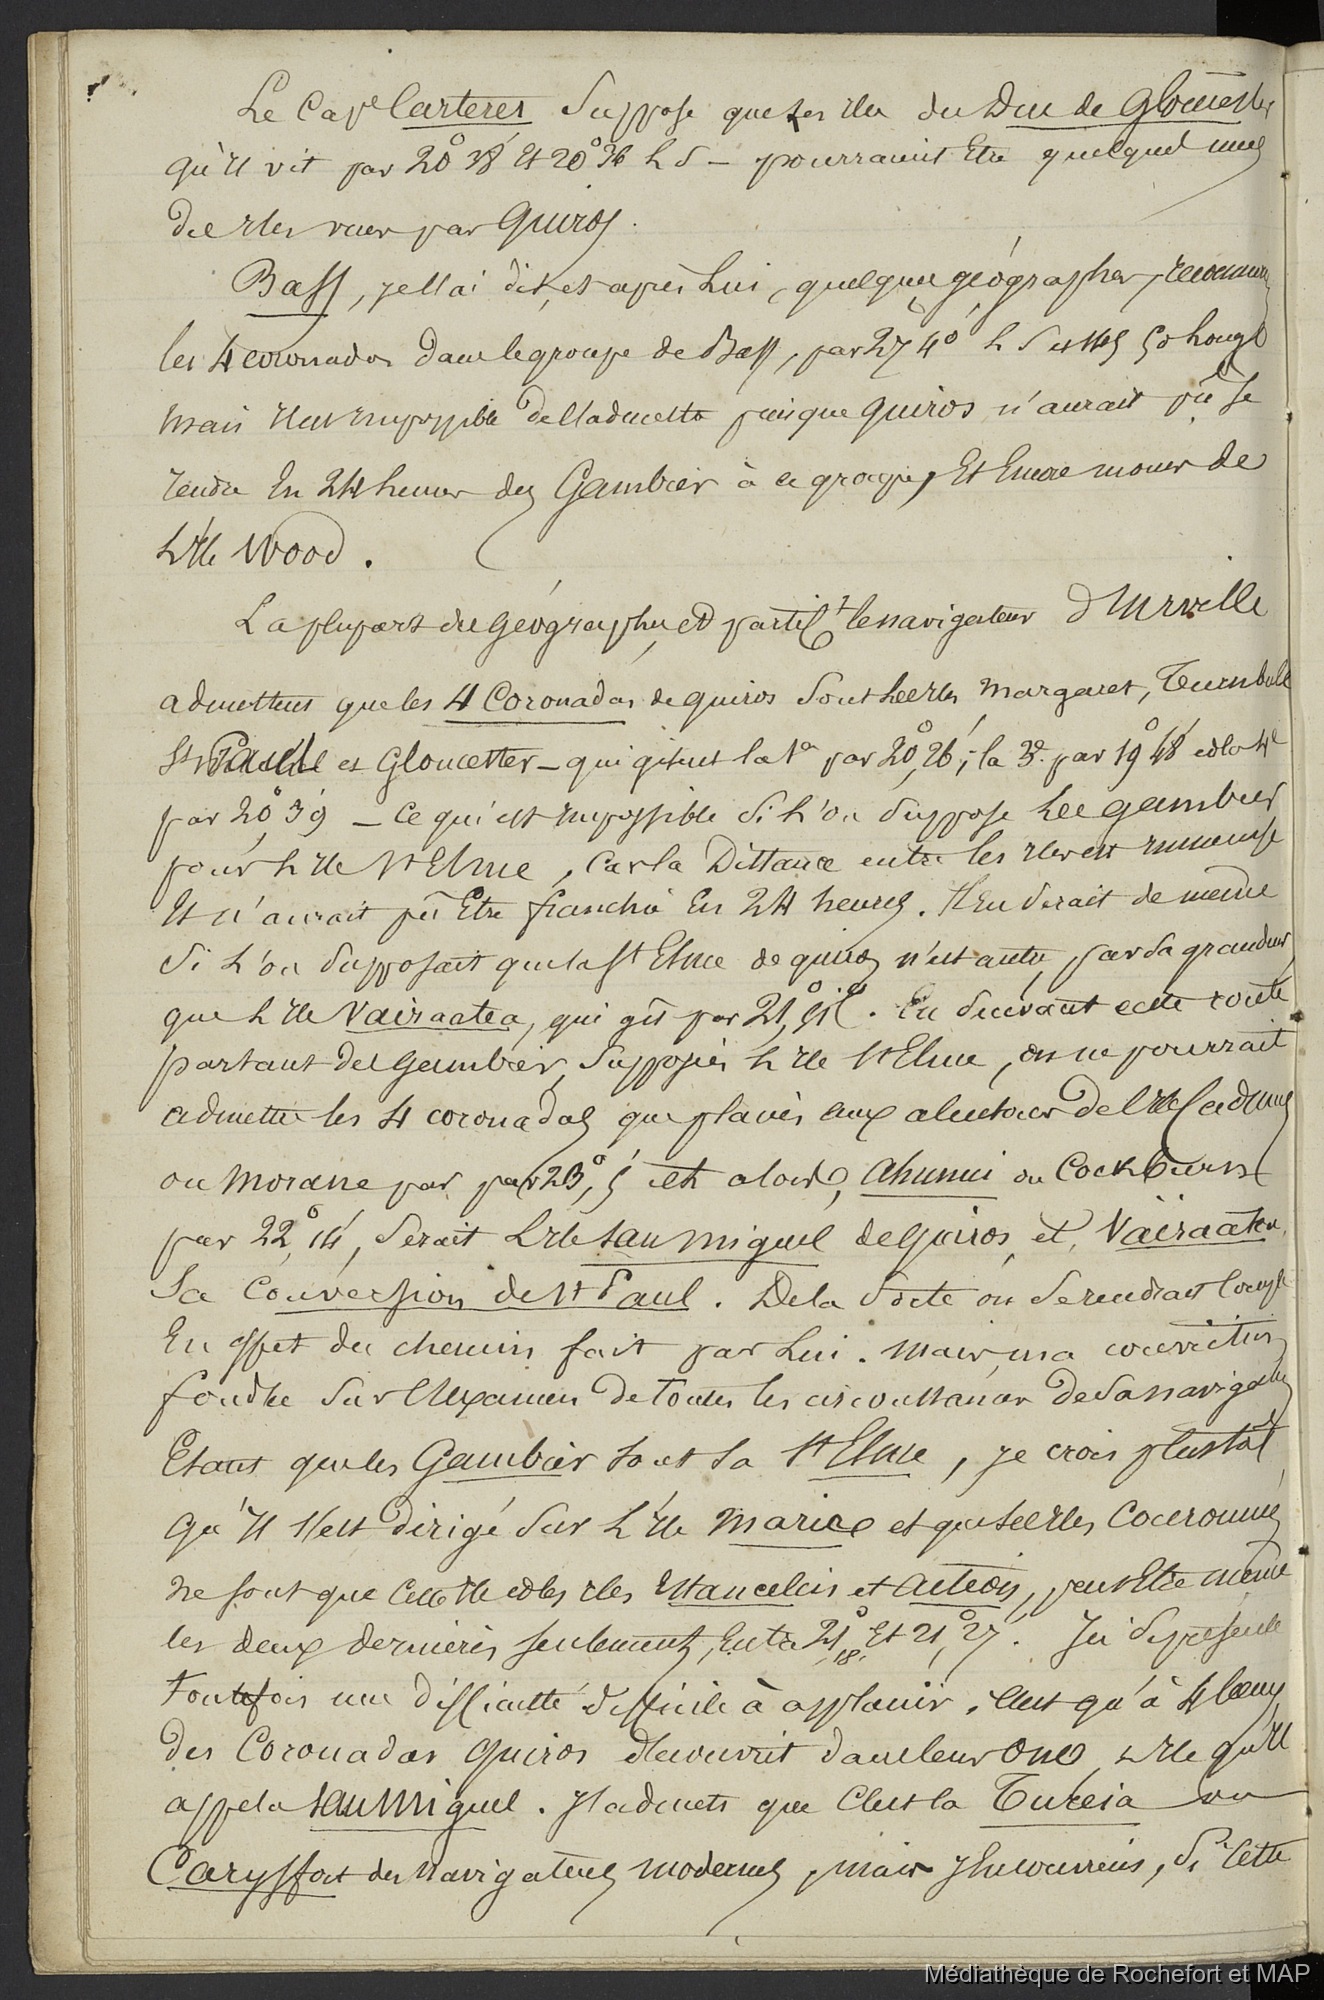 Le Cape Carteres Suppose que les iles du Duc de Gloucester
qu'il vit par 20° 38' et 20° 36 L S - pourraient Etre quelques unes
des iles vues par Quiros.
Bass, je l'ai dit, et après Lui, quelques géographes,
les 4 coronados dans le groupe de Bass, par 27 40 L S et 149 50 Longe
mais il est impossible de l'admettre puisque Quiros n'aurait pû se
rendre En 24 heures des Gambier à ce groupe, Et Encore moins de
L'ile Wood.
La plupart des géographes, et partict le navigateur D'Urville
admettent que les 4 Coronados de Quiros Sont les iles Margaret, Turnbull
St Paul et Gloucester - qui gisent la 1a par 20°, 26'; la 3e. par 19° 48' et la 4e
par 20°, 39 - Ce qui est impossible Si L'on Suppose les Gambier
pour L'ile St Elme, Car la Distance entre les iles est immense
Et n'aurait pû Etre franchie En 24 heures. Il En Serait de même
Si L'on Supposait que la St Elme de Quiros n'est autre, par Sa grandeur
que L'ile Vairaatea, qui gît par. En Suivant cette route
partant des Gambier, Supposées L'ile St Elme, on ne pourrait
admettre les 4 coronadas que placées aux alentours de L'ile Cadmus
ou Morane par par 23°, 5 et alors, Ahunui ou Cockburn
par 22°, 14', Serait L'ile San Miguel de Quiros, et, Vairaatea,
La Conversion de St Paul. De la Sorte on Se rendrait Compte
En effet du chemin fait par Lui. Mais, ma conviction
fondée Sur L'Examen de Toutes les circonstances de Sa navigation
Etant que les Gambier Sont La St Elme, je crois plustôt
Qu'Il s'est dirigé Sur L'Ile Maria et que les iles Couronnées
ne sont que Cette Ile et les iles et Acteon, peut Etre même
les deux dernières seulement, Entre 21° 18' Et 21°, 27'. Ici Se présente
toutefois une difficulté difficile à applanir. C'est qu'à 4 lieues
des Coronadas Quiros découvrit dans leur ONO, L'ile qu'Il
appela San Miguel. J'admets que C'est la Tureia ou
Carysfort des Navigateurs modernes, mais, Si Cette
Médiathèque de Rochefort et MAP